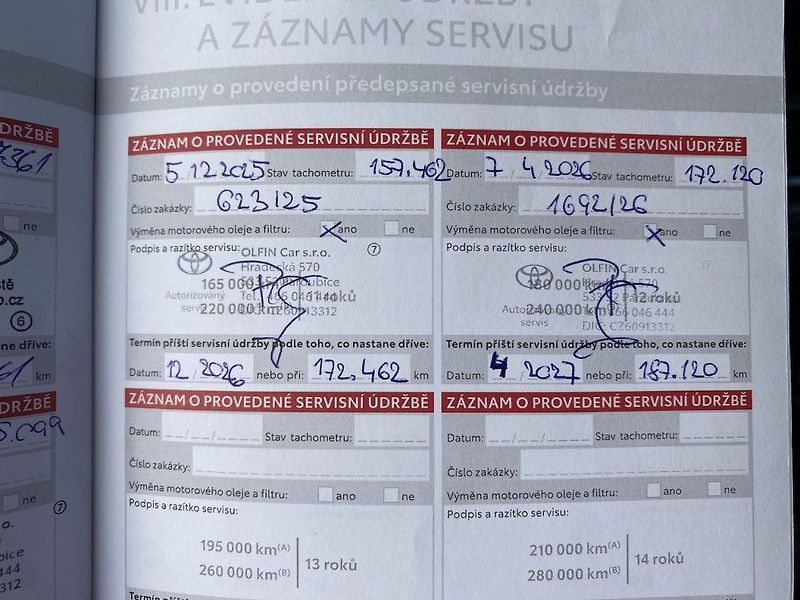 VIII. EVIDENCE ÚDRŽBY
A ZÁZNAMY SERVISU
Záznamy o provedení předepsané servisní údržby
DRŽBĚ
7361
ne
ště
o.cz
6
ne dříve:
61 km
DRŽBĚ
5.099
ne
7
o.
bice
444
3312
ZÁZNAM O PROVEDENÉ SERVISNÍ ÚDRŽBĚ
Datum: 5 12 2025 Stav tachometru: 157.462
Číslo zakázky: 623/25
Výměna motorového oleje a filtru: X ano ne
Podpis a razítko servisu: OLFIN Car s.r.o. 7
Hradecká 570
165 000
Autorizovaný Tel. 466 046 444 11 roků
servis 220 000 km CZ60913312
Termín příští servisní údržby podle toho, co nastane dříve:
Datum: 12 / 2026 nebo při: 172.462 km
ZÁZNAM O PROVEDENÉ SERVISNÍ ÚDRŽBĚ
Datum: 7 / 4 2026 Stav tachometru: 172.120
Číslo zakázky: 1692/26
Výměna motorového oleje a filtru: X ano ne
Podpis a razítko servisu: OLFIN Car s.r.o.
180 000 570
533 52 12 roků
240 000 466 046 444
servis DIČ: CZ60913312
Termín příští servisní údržby podle toho, co nastane dříve:
Datum: 4 / 2027 nebo při: 187.120 km
ZÁZNAM O PROVEDENÉ SERVISNÍ ÚDRŽBĚ
Datum: __/__/____ Stav tachometru:
Číslo zakázky:
Výměna motorového oleje a filtru: ano ne
Podpis a razítko servisu:
195 000 km(A)
13 roků
260 000 km(B)
Termín příští
ZÁZNAM O PROVEDENÉ SERVISNÍ ÚDRŽBĚ
Datum: __/__/____ Stav tachometru:
Číslo zakázky:
Výměna motorového oleje a filtru: ano ne
Podpis a razítko servisu:
210 000 km(A)
14 roků
280 000 km(B)